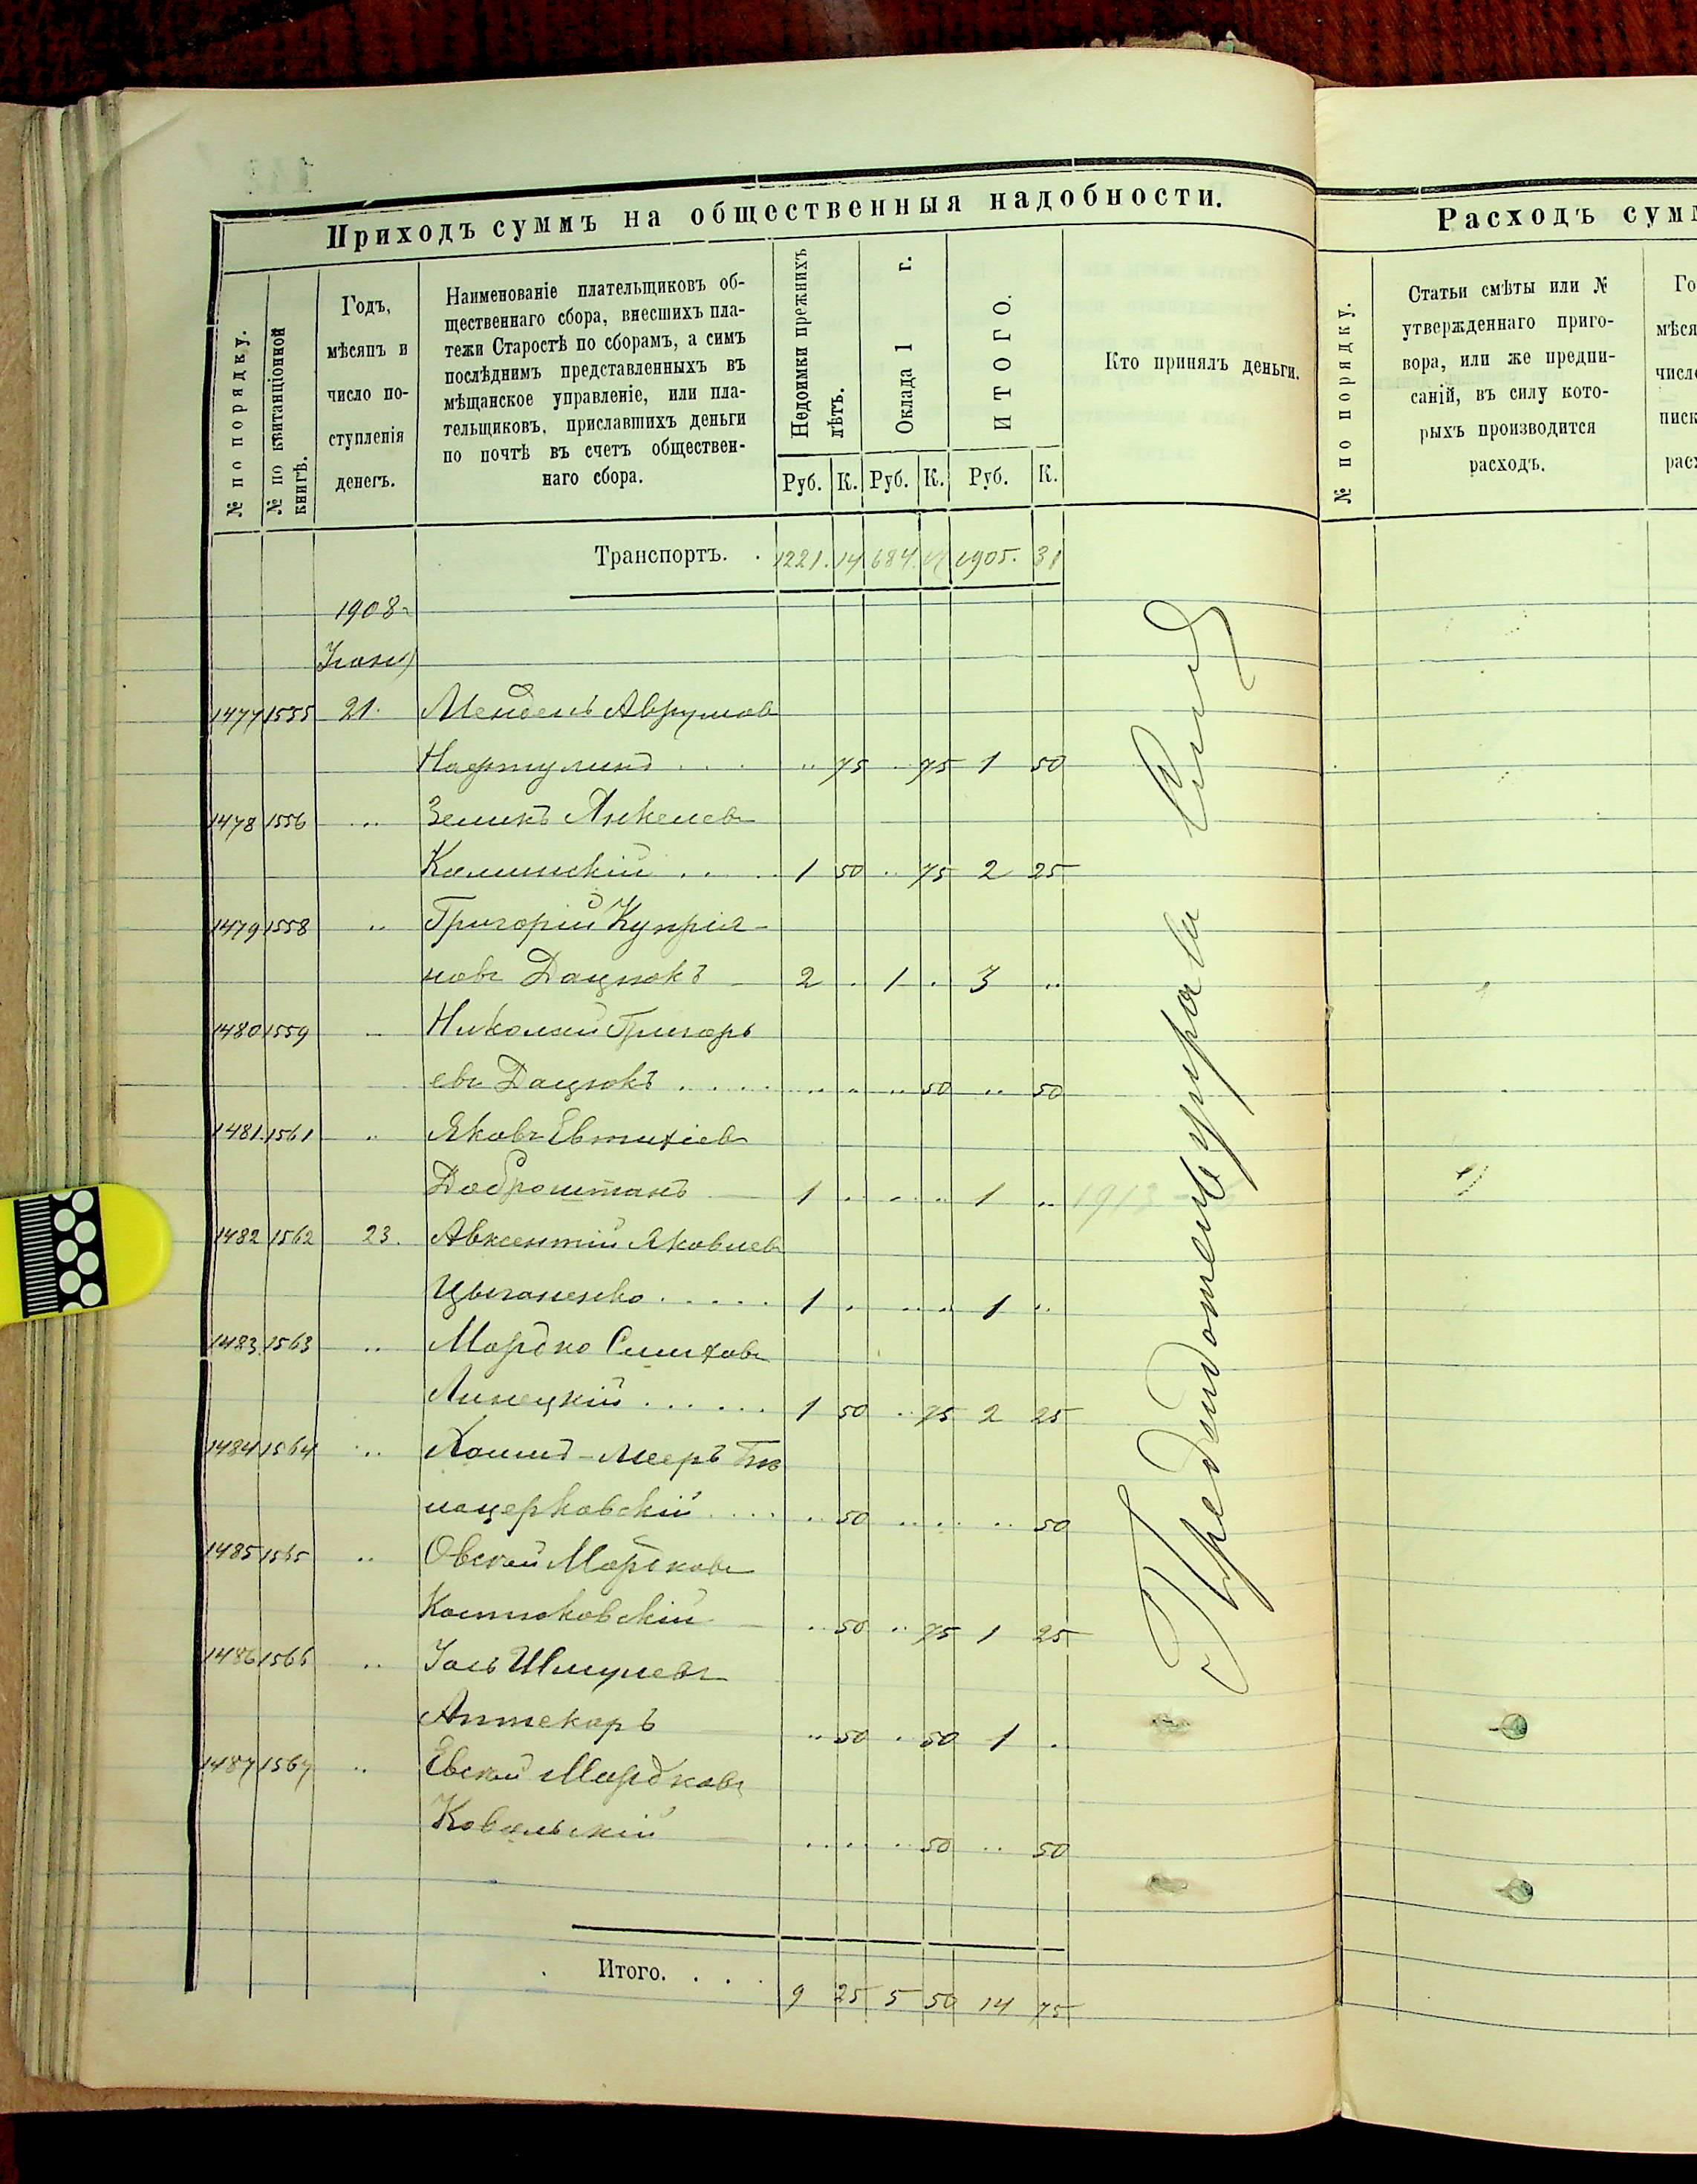 Приходъ суммъ на общественныя надобности.
№ по порядку.
№ по квитанціонной
книгѣ.
Годъ,
мѣсяцъ и
число по-
ступленія
денегъ.
Наименованіе плательщиковъ об-
щественнаго сбора, внесшихъ пла-
тежи Старостѣ по сборамъ, а симъ
послѣднимъ представленныхъ въ
мѣщанское управленіе, или пла-
тельщиковъ, приславшихъ деньги
по почтѣ въ счетъ обществен-
наго сбора.
Недоимки прежнихъ
лѣтъ.
Оклада 1 г.
ИТОГО.
Кто принялъ деньги.
Руб. К. Руб. К. Руб. К.
Транспортъ. . 1221. 14 684. 17 1905. 31
1908
1477 1555 21. Мендель Аврумов
Нафтулинъ .. 75 .. 75 1 50
1478 1556 .. Зеликъ Янкелев
Калинскій . . . . 1 50 .. 75 2 25
1479 1558 .. Григорій Купрія-
новъ Дацюкъ 2 . 1 . 3 ..
1480 1559 Николай Григорь
евъ Дацюкъ . . . . .. .. .. 50 .. 50
1481. 1561 .. Яковъ Евтихіев
Доброштанъ 1 .. .. .. 1 .. 1913
1482 1562 23. Авксентій Яковлев
Цыганенко . . . . . 1 . .. .. 1 ..
1483. 1563 .. Мордко Симхов
Линецкій . . . . . . 1 50 .. 75 2 25
1484 1564 .. Хаимъ-Мееръ Бѣ
лоцерковскій . . . . .. 50 .. .. .. 50
1485 1565 .. Овсей Мордков
Костюковскій .. 50 .. 75 1 25
1486 1566 .. Шмулев
Аптекарь .. 50 . 50 1 .
1487 1567 .. Евсей Мордков
Ковальскій .. .. .. 50 .. 50
Итого. . . . 9 25 5 50 14 75
Расходъ сумм
№ по порядку.
Статьи смѣты или №
утвержденнаго приго-
вора, или же предпи-
саній, въ силу кото-
рыхъ производится
расходъ.
Го
мѣся
число
писк
рас